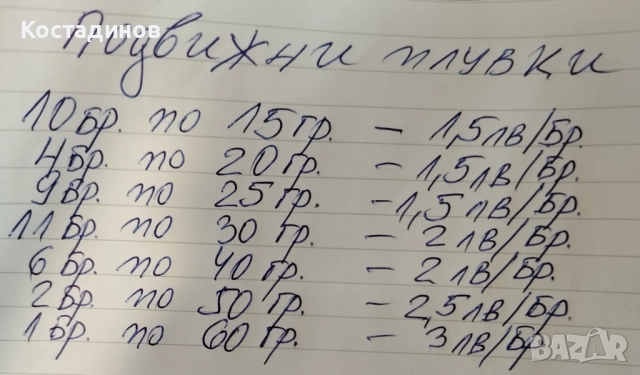 Костадинов
Подвижни плувки
10 бр. по 15 гр. – 1,5 лв/бр.
4 бр. по 20 гр. – 1,5 лв/бр.
9 бр. по 25 гр. – 1,5 лв/бр.
11 бр. по 30 гр. – 2 лв/бр.
6 бр. по 40 гр. – 2 лв/бр.
2 бр. по 50 гр. – 2,5 лв/бр.
1 бр. по 60 гр. – 3 лв/бр
BAZAR